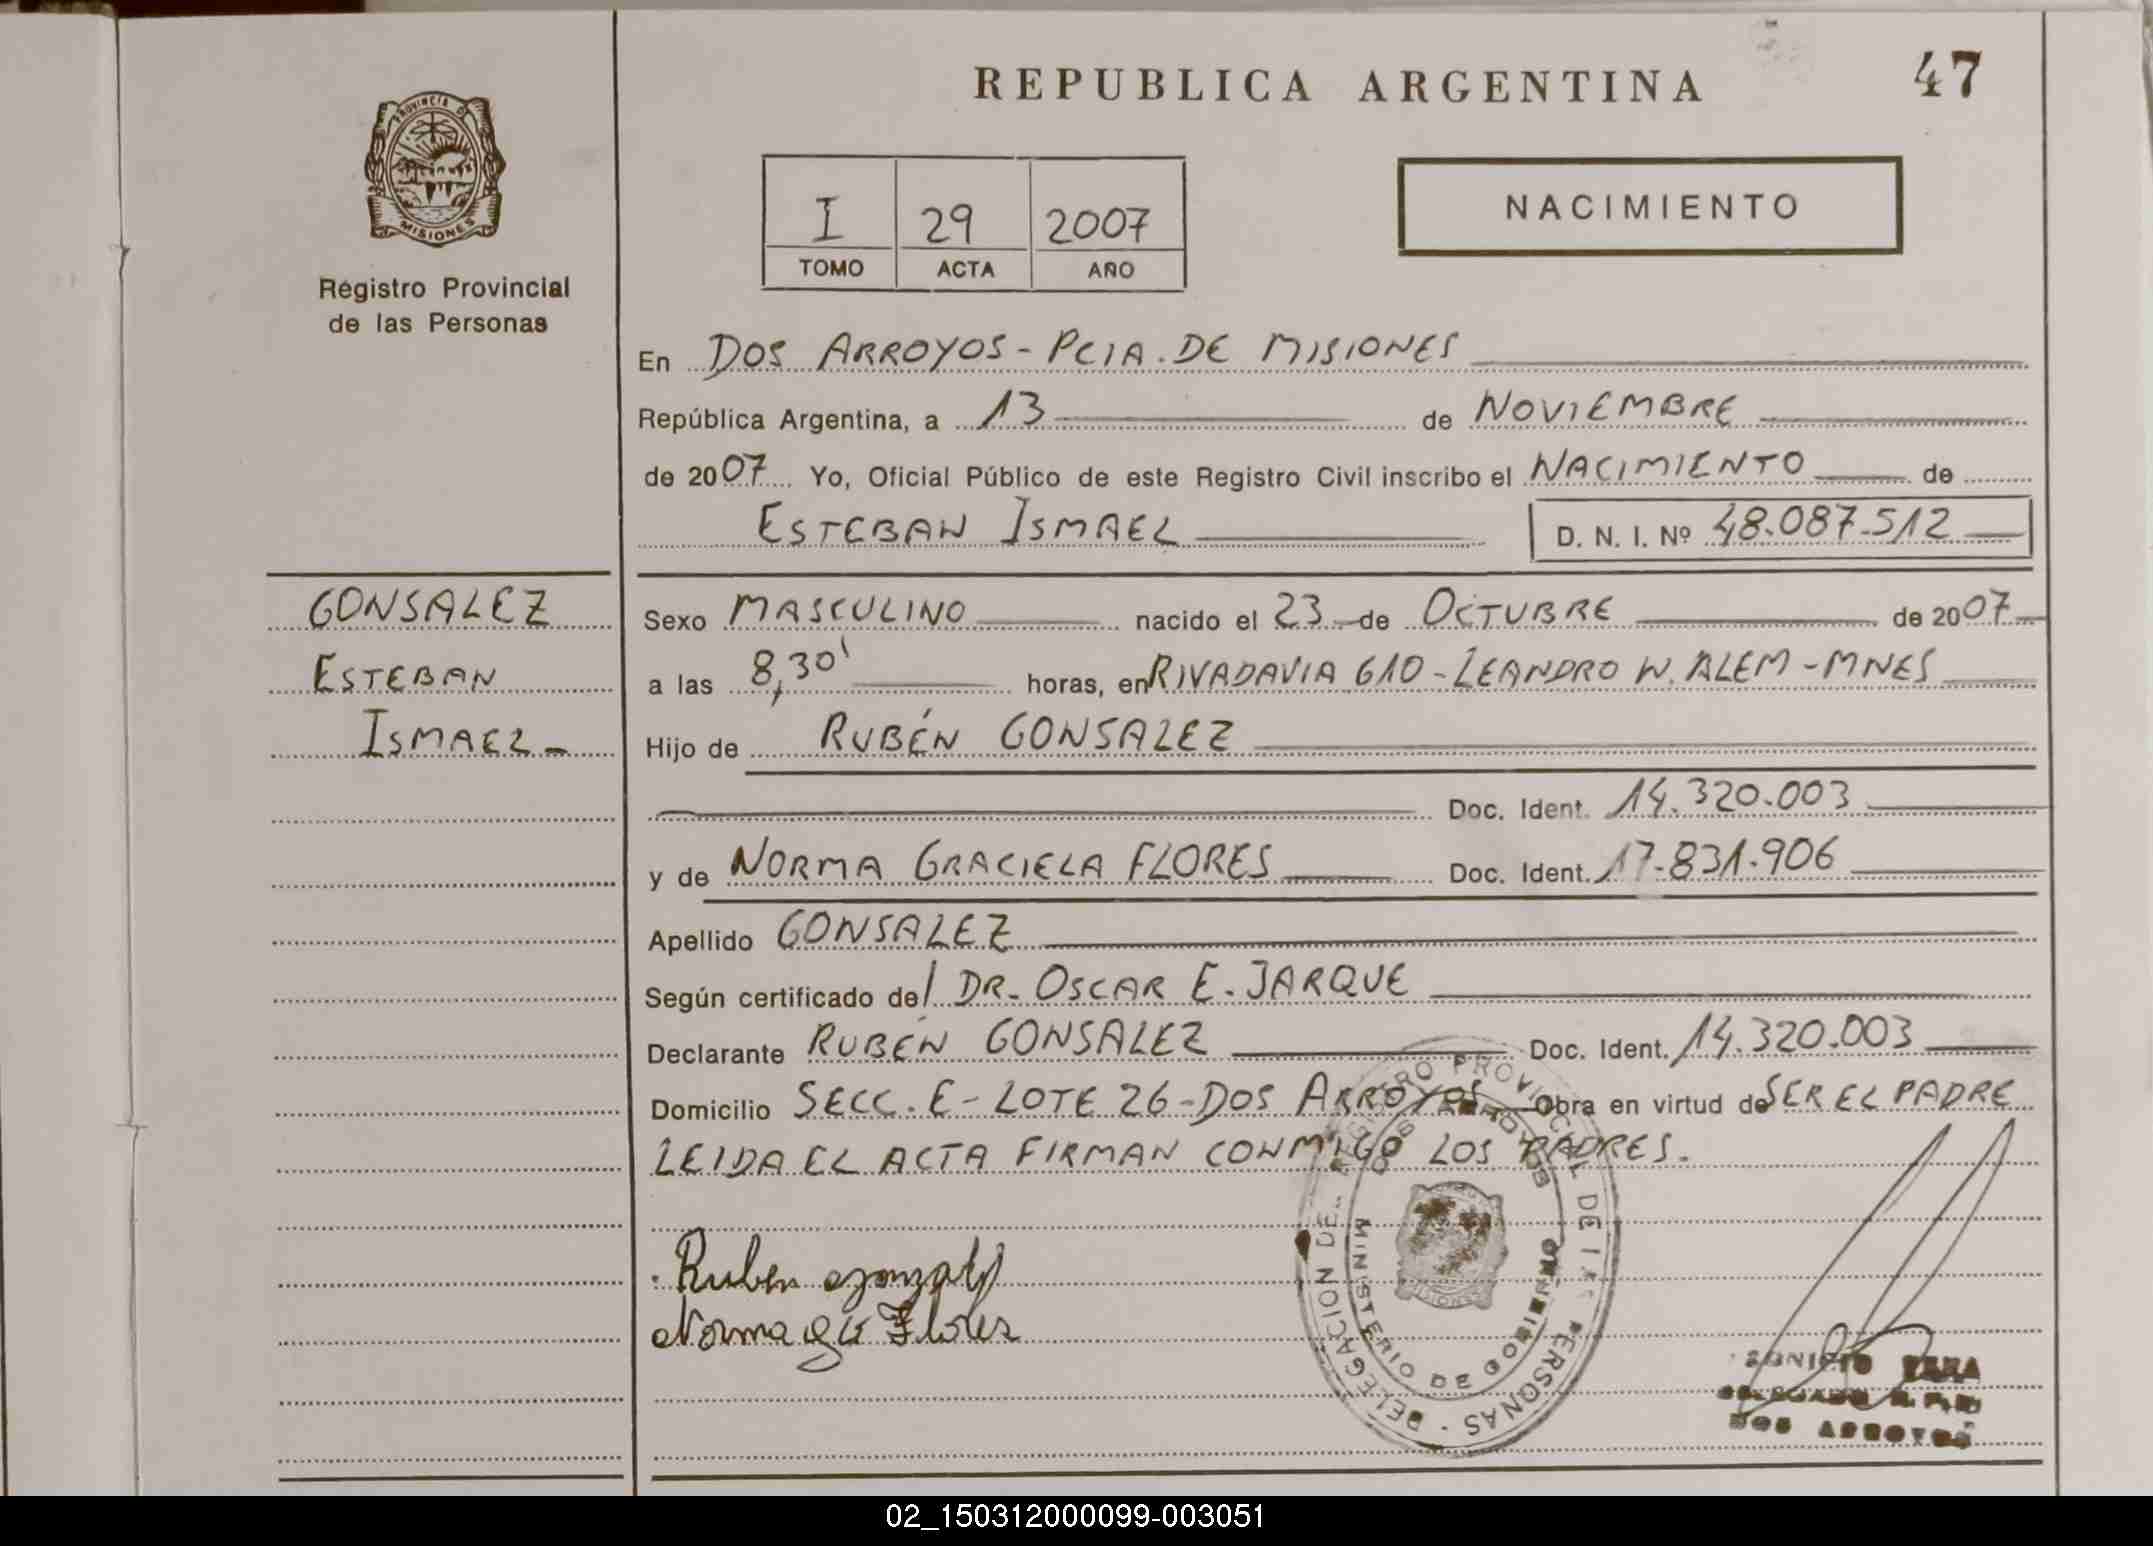 REPUBLICA ARGENTINA
47
PROVINCIA DE
MISIONES
Registro Provincial
de las Personas
I 29 2007
TOMO ACTA AÑO
NACIMIENTO
En DOS ARROYOS - PCIA. DE MISIONES
República Argentina, a 13 de NOVIEMBRE
de 2007 Yo, Oficial Público de este Registro Civil inscribo el NACIMIENTO de
ESTEBAN ISMAEL D. N. I. Nº 48.087.512
GONSALEZ
ESTEBAN
ISMAEL-
Sexo MASCULINO nacido el 23 de OCTUBRE de 2007
a las 8,30' horas, en RIVADAVIA 610 - LEANDRO N. ALEM - MNES
Hijo de RUBÉN GONSALEZ
Doc. Ident. 14.320.003
y de NORMA GRACIELA FLORES Doc. Ident. 17.831.906
Apellido GONSALEZ
Según certificado del DR. OSCAR E. JARQUE
Declarante RUBÉN GONSALEZ Doc. Ident. 14.320.003
Domicilio SECC. E - LOTE 26 - DOS ARROYOS Obra en virtud de SER EL PADRE
LEIDA EL ACTA FIRMAN CONMIGO LOS PADRES.
Ruben
Norma Flores
REGISTRO PROVINCIAL DE LAS PERSONAS - DELEGACION DE
DOS ARROYOS
MINISTERIO DE GOBIERNO
DOS ARROYOS
02_150312000099-003051